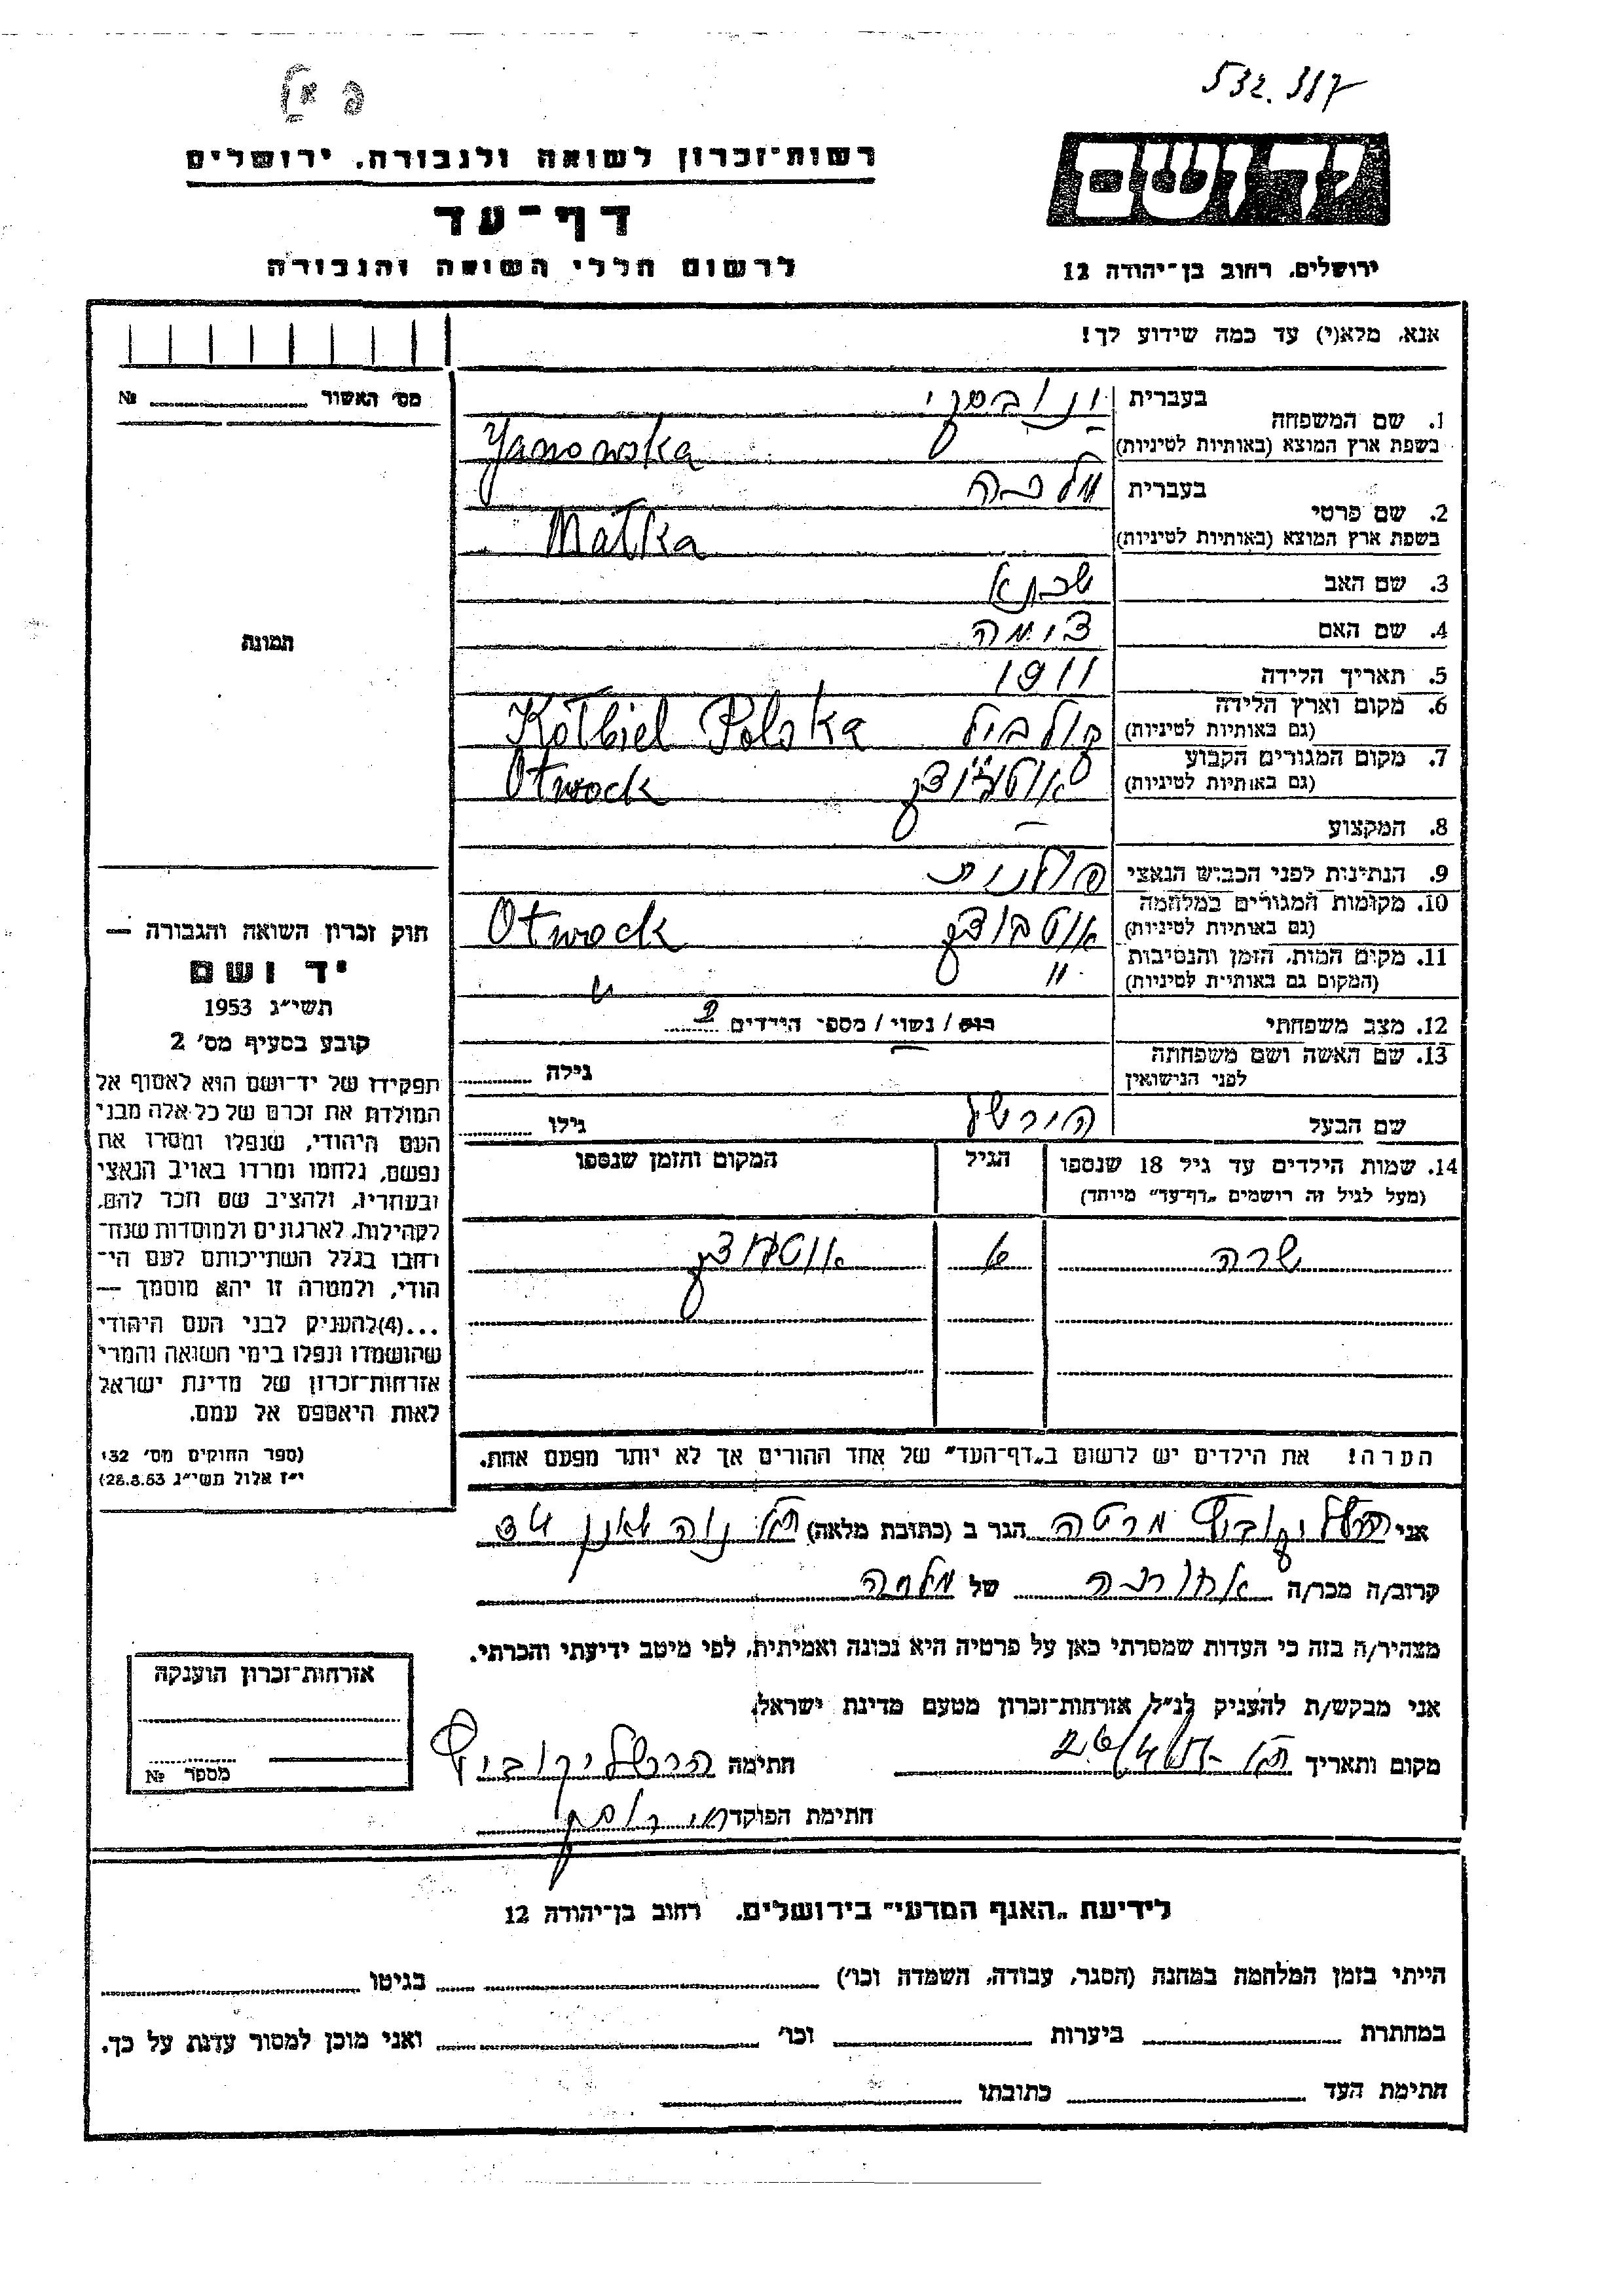 532.317
יד ושם
רשות־זכרון לשואה ולגבורה. ירושלים
דף־עד
לרשום חללי השואה והגבורה
ירושלים. רחוב בן־יהודה 12
אנא. מלא(י) עד כמה שידוע לך!
מס׳ האשור №
1. שם המשפחה
בעברית ינובסקי
בשפת ארץ המוצא (באותיות לטיניות) Yanowska
2. שם פרטי
בעברית מלכה
בשפת ארץ המוצא (באותיות לטיניות) Małka
3. שם האב
4. שם האם
5. תאריך הלידה 1911
6. מקום וארץ הלידה
(גם באותיות לטיניות) קולביל Kołbiel Polska
7. מקום המגורים הקבוע
(גם באותיות לטיניות) אוטבוצק Otwock
8. המקצוע —
9. הנתינות לפני הכבוש הנאצי פולנית
10. מקומות המגורים במלחמה
(גם באותיות לטיניות) אוטבוצק Otwock
11. מקום המות. הזמן והנסיבות
(המקום גם באותיות לטיניות) "
12. מצב משפחתי רוק/נשוי/מספר הילדים 2
13. שם האשה ושם משפחתה
לפני הנישואין גילה
שם הבעל הירשל גילו
14. שמות הילדים עד גיל 18 שנספו
(מעל לגיל זה רושמים „דף־עד״ מיוחד)
הגיל
המקום והזמן שנספו
שרה אוטבוצק
הערה! את הילדים יש לרשום ב„דף־העד״ של אחד ההורים אך לא יותר מפעם אחת.
תמונה
חוק זכרון השואה והגבורה —
יד ושם
תשי״ג 1953
קובע בסעיף מס׳ 2
תפקידו של יד־ושם הוא לאסוף אל
המולדת את זכרם של כל אלה מבני
העם היהודי, שנפלו ומסרו את
נפשם, נלחמו ומרדו באויב הנאצי
ובעוזריו, ולהציב שם וזכר להם,
לקהילות, לארגונים ולמוסדות שנח־
רבו בגלל השתייכותם לעם הי־
הודי, ולמטרה זו יהא מוסמך —
...(4)להעניק לבני העם היהודי
שהושמדו ונפלו בימי השואה והמרי
אזרחות־זכרון של מדינת ישראל
לאות היאספם אל עמם.
(ספר החוקים מס׳ 132
י״ז אלול תשי״ג 28.8.53)
אני הרשליקוביץ מרטה הגר ב (כתובת מלאה) ת״א נוה שאנן 34
קרוב/ה מכר/ה אחותה של מלכה
מצהיר/ה בזה כי העדות שמסרתי כאן על פרטיה היא נכונה ואמיתית, לפי מיטב ידיעתי והכרתי.
אני מבקש/ת להעניק לנ״ל אזרחות־זכרון מטעם מדינת ישראל.
מקום ותאריך ת״א חתימה הרשליקוביץ
חתימת הפוקד
אזרחות־זכרון הוענקה
מספר №
לידיעת „האגף המדעי״ בירושלים. רחוב בן־יהודה 12
הייתי בזמן המלחמה במחנה (הסגר, עבודה, השמדה וכו׳) בגיטו
במחתרת ביערות וכו׳ ואני מוכן למסור עדות על כך.
חתימת העד כתובתו